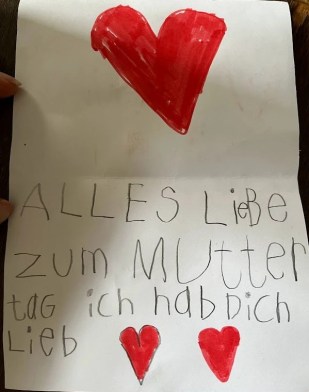 ALLES LiEBE
zum MUtter
taG ich habDich
Lieb